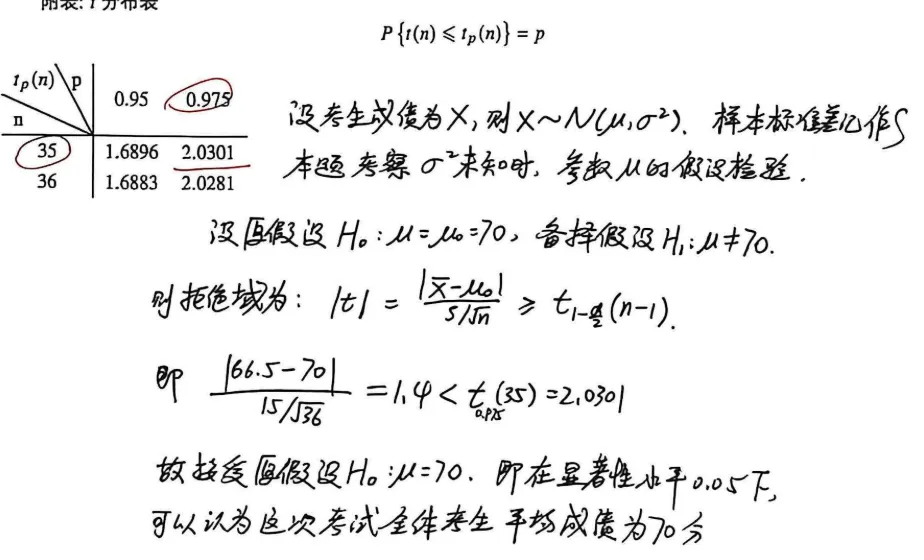 附表: t 分布表
P{t(n) ⩽ tp(n)} = p
tp(n) p 0.95 0.975
n
35 1.6896 2.0301
36 1.6883 2.0281
设考生成绩为X, 则X~N(μ,σ²). 样本标准差记作S
本题考察σ²未知时, 参数μ的假设检验.
设原假设H₀:μ=μ₀=70, 备择假设H₁:μ≠70.
则拒绝域为: |t| = |X̄-μ₀| / (S/√n) ⩾ t₁₋α/₂(n-1).
即 |66.5-70| / (15/√36) = 1.4 < t₀.₉₇₅(35) = 2.0301
故接受原假设H₀:μ=70. 即在显著性水平0.05下,
可以认为这次考试全体考生平均成绩为70分